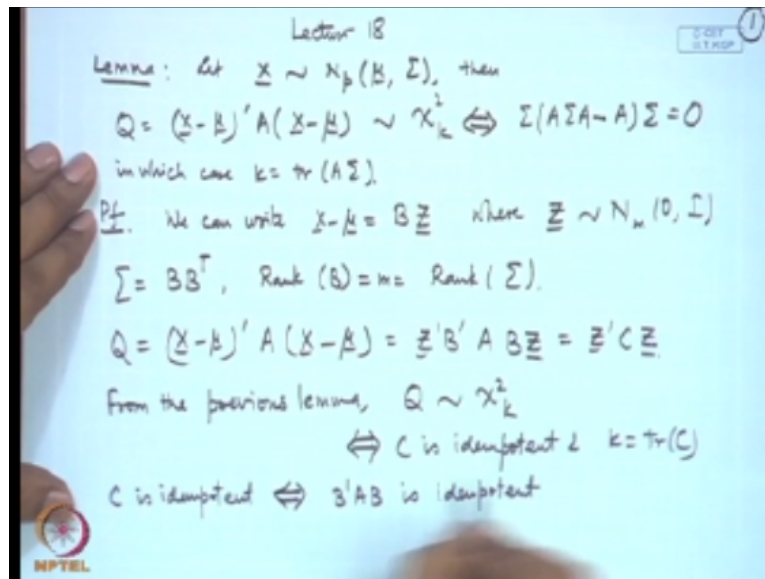 Lecture 18
1
Lemma: Let x ~ N_p(μ, Σ), then
Q = (x-μ)' A(x-μ) ~ χ²_k ⇔ Σ(AΣA-A)Σ = 0
in which case k = tr(AΣ).
Pf. We can write x-μ = BZ where Z ~ N_m(0, I)
Σ = BB^T, Rank(B) = m = Rank(Σ).
Q = (x-μ)' A(x-μ) = Z'B' A BZ = Z'CZ
From the previous lemma, Q ~ χ²_k
⇔ C is idempotent & k = tr(C)
C is idempotent ⇔ B'AB is idempotent
NPTEL